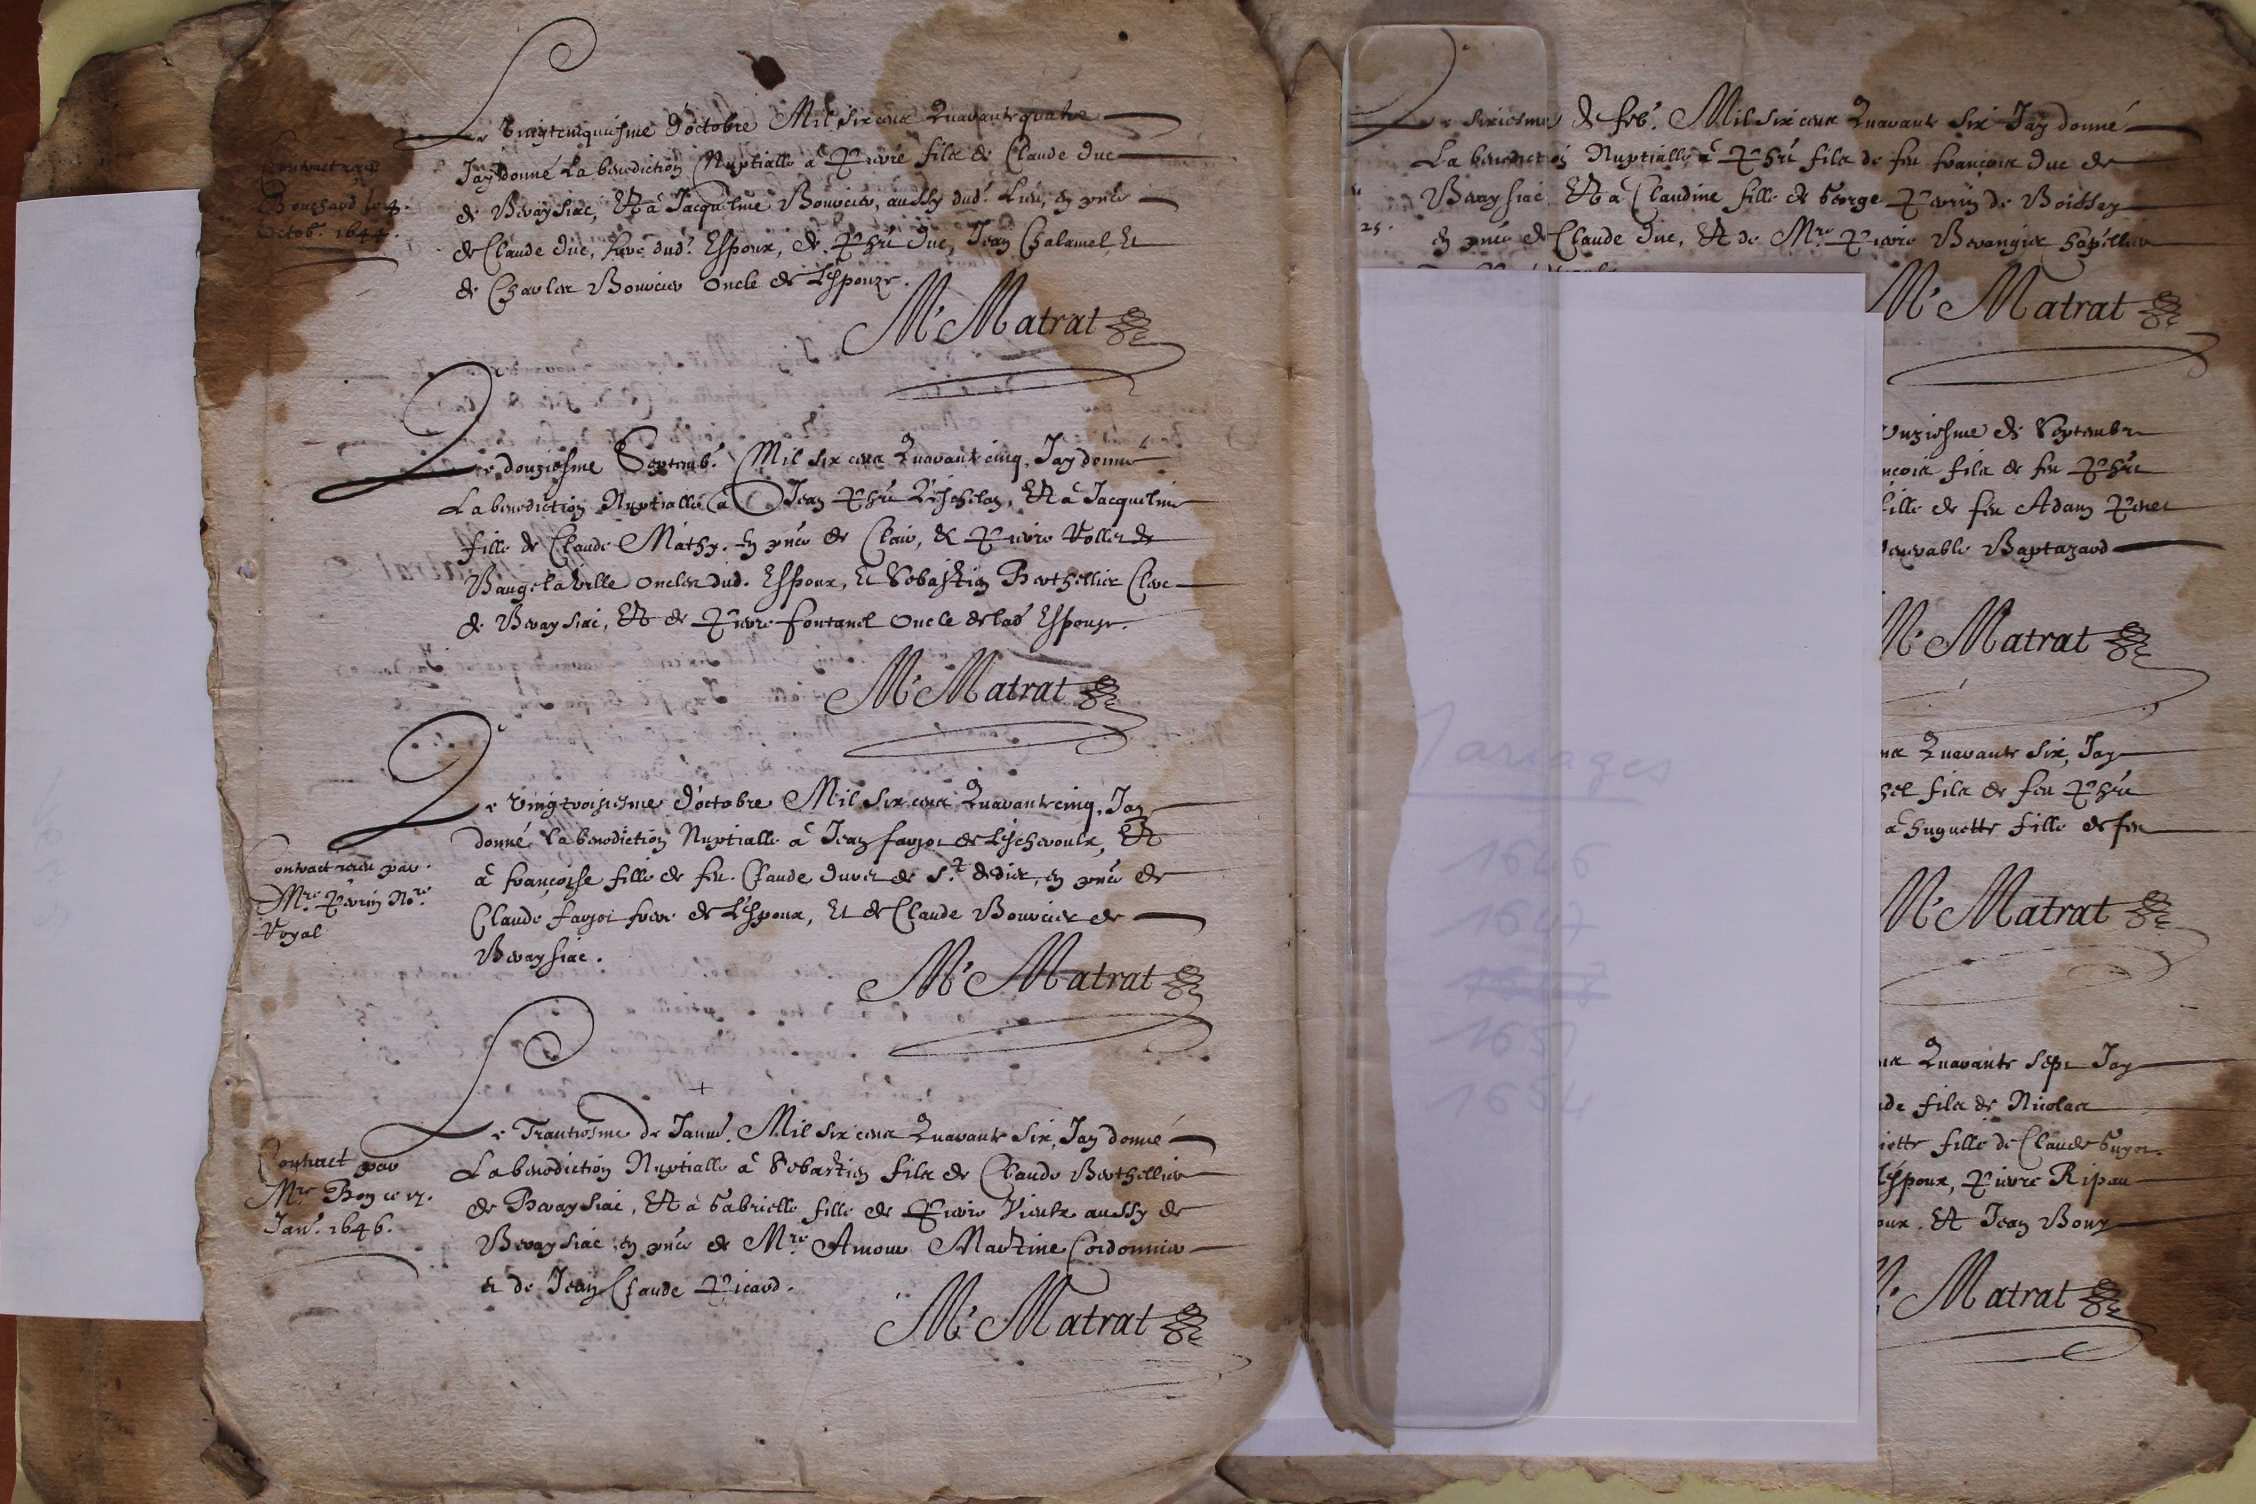 Contract receu
Bouchard le 4.
Octob. 1644.
Le vingtcinquiesme d'octobre Mil six cens Quarante quatre
Jay donné La benediction Nuptialle à Pierre fils de Claude Duc
de Beraysiac, Et à Jacqueline Bouvier, aussy dud. Lieu, en pnce
de Claude Duc, frere dud. Espoux, de Phs Duc, Jean Chalamel, Et
de Charles Bouvier Oncle de L'Espouze.
M. Matrat
Le douziesme Septemb. Mil six cens Quarante cinq, Jay donné
La benediction Nuptialle à Jean Phs, Et à Jacqueline
fille de Claude Mathy. En pnce de Clair, & Pierre Vollet de
Baugé la ville Oncles dud. Espoux, Et Sebastien Berthellier Clerc
de Beraysiac, Et de Pierre fontanel Oncle de lad Espouze.
M. Matrat
Contract receu par
Mre Perrin Nore
Royal
Le vingtroisiesme d'octobre Mil six cens Quarante cinq, Jay
donné La benediction Nuptialle à Jean fayjot de L'Eschevoulx, Et
à françoise fille de feu Claude Duret de St. dedier, en pnce de
Claude fayjot frere de L'Espoux, Et de Claude Bouvier de
Beraysiac.
M. Matrat
+
Contract par
Mre Boyce 17.
Janv. 1646.
Le Trantiesme de Janvr. Mil six cens Quarante Six, Jay donné
La benediction Nuptialle à Sebastien fils de Claude Berthellier
de Beraysiac, Et à Gabrielle fille de Pierre Vieulx aussy de
Beraysiac, en pnce de Mre Amour Martine Cordonnier
et de Jean Claude Picard.
M. Matrat
Le sixiesme de feb. Mil six cens Quarante Six Jay donné
La benediction Nuptialle, à Phs fils de feu françois Duc de
Beraysiac, Et à Claudine fille de George Perrin de Boissey
25.
en pnce de Claude Duc, Et de Mre Pierre Berangier
M. Matrat
unziesme de Septembre
nçois fils de feu Phs
fille de feu Adam
Venerable Baptazard
M. Matrat
Mariages
1646
1647
1651
1654
ns Quarante Six, Jay
hel fils de feu Phs
à huguette fille de feu
M. Matrat
ns Quarante Sept Jay
de fils de Nicolas
iette fille de Claude Guyot.
L'Espoux, Pierre Ripau
oux, Et Jean Bouy
M. Matrat